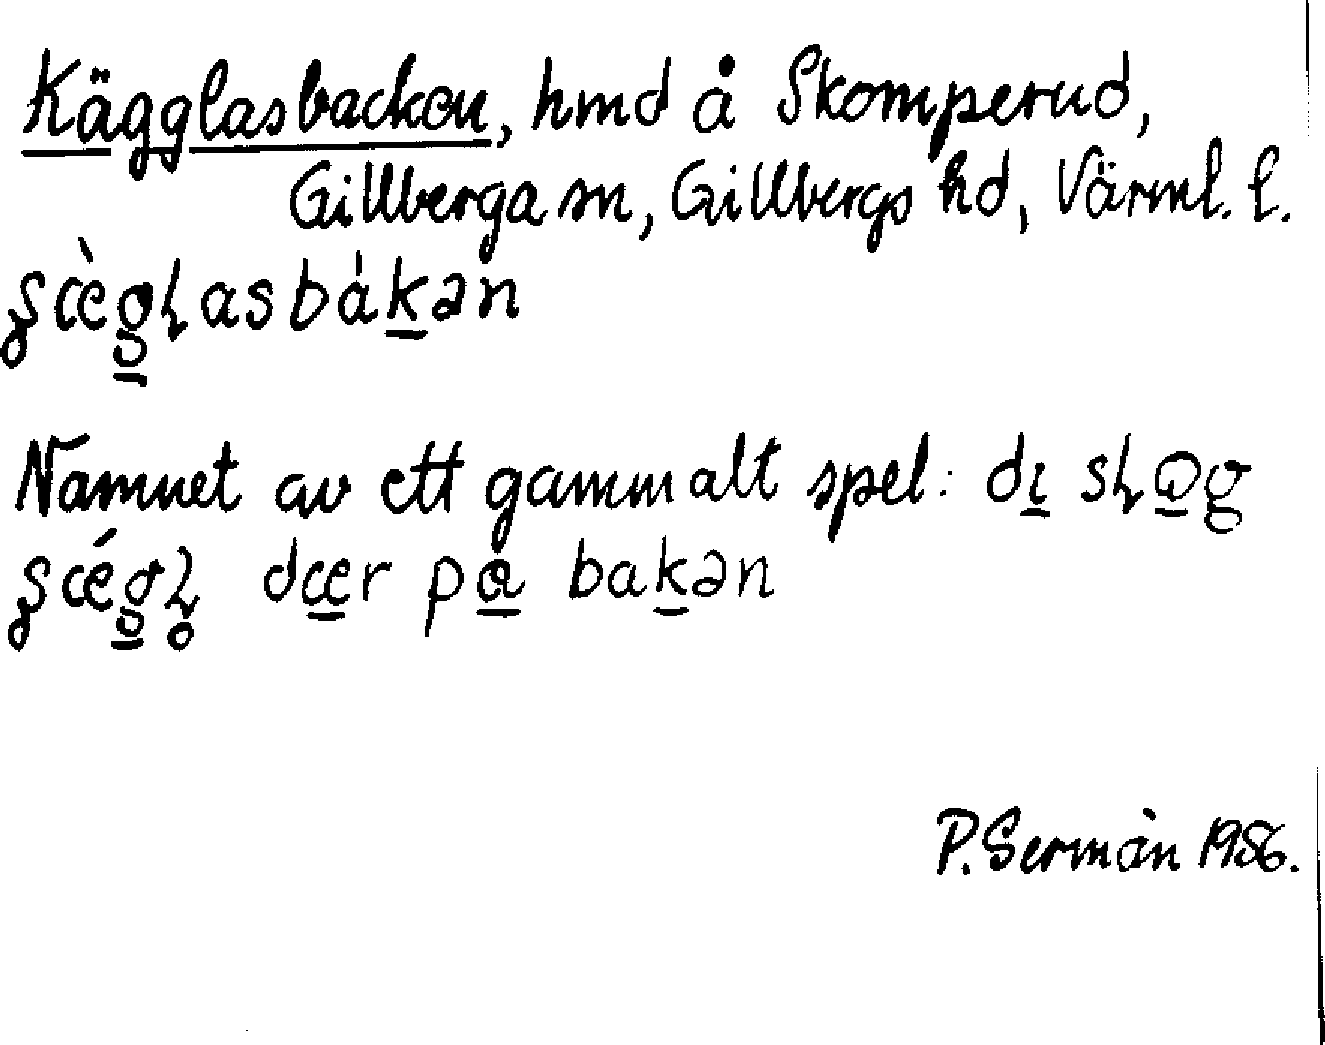 Kägglasbacken, hmd å Skomperud,
Gillberga sn, Gillbergs hd, Värml. l.
ʂæ̀g̱ɽasbákə̱n
Namnet av ett gammalt spel: dɩ̱ sɽo̱g
ʂǽg̱ɽ̥ dæ̱r på̱ baḵən
P. Sermån 1956.